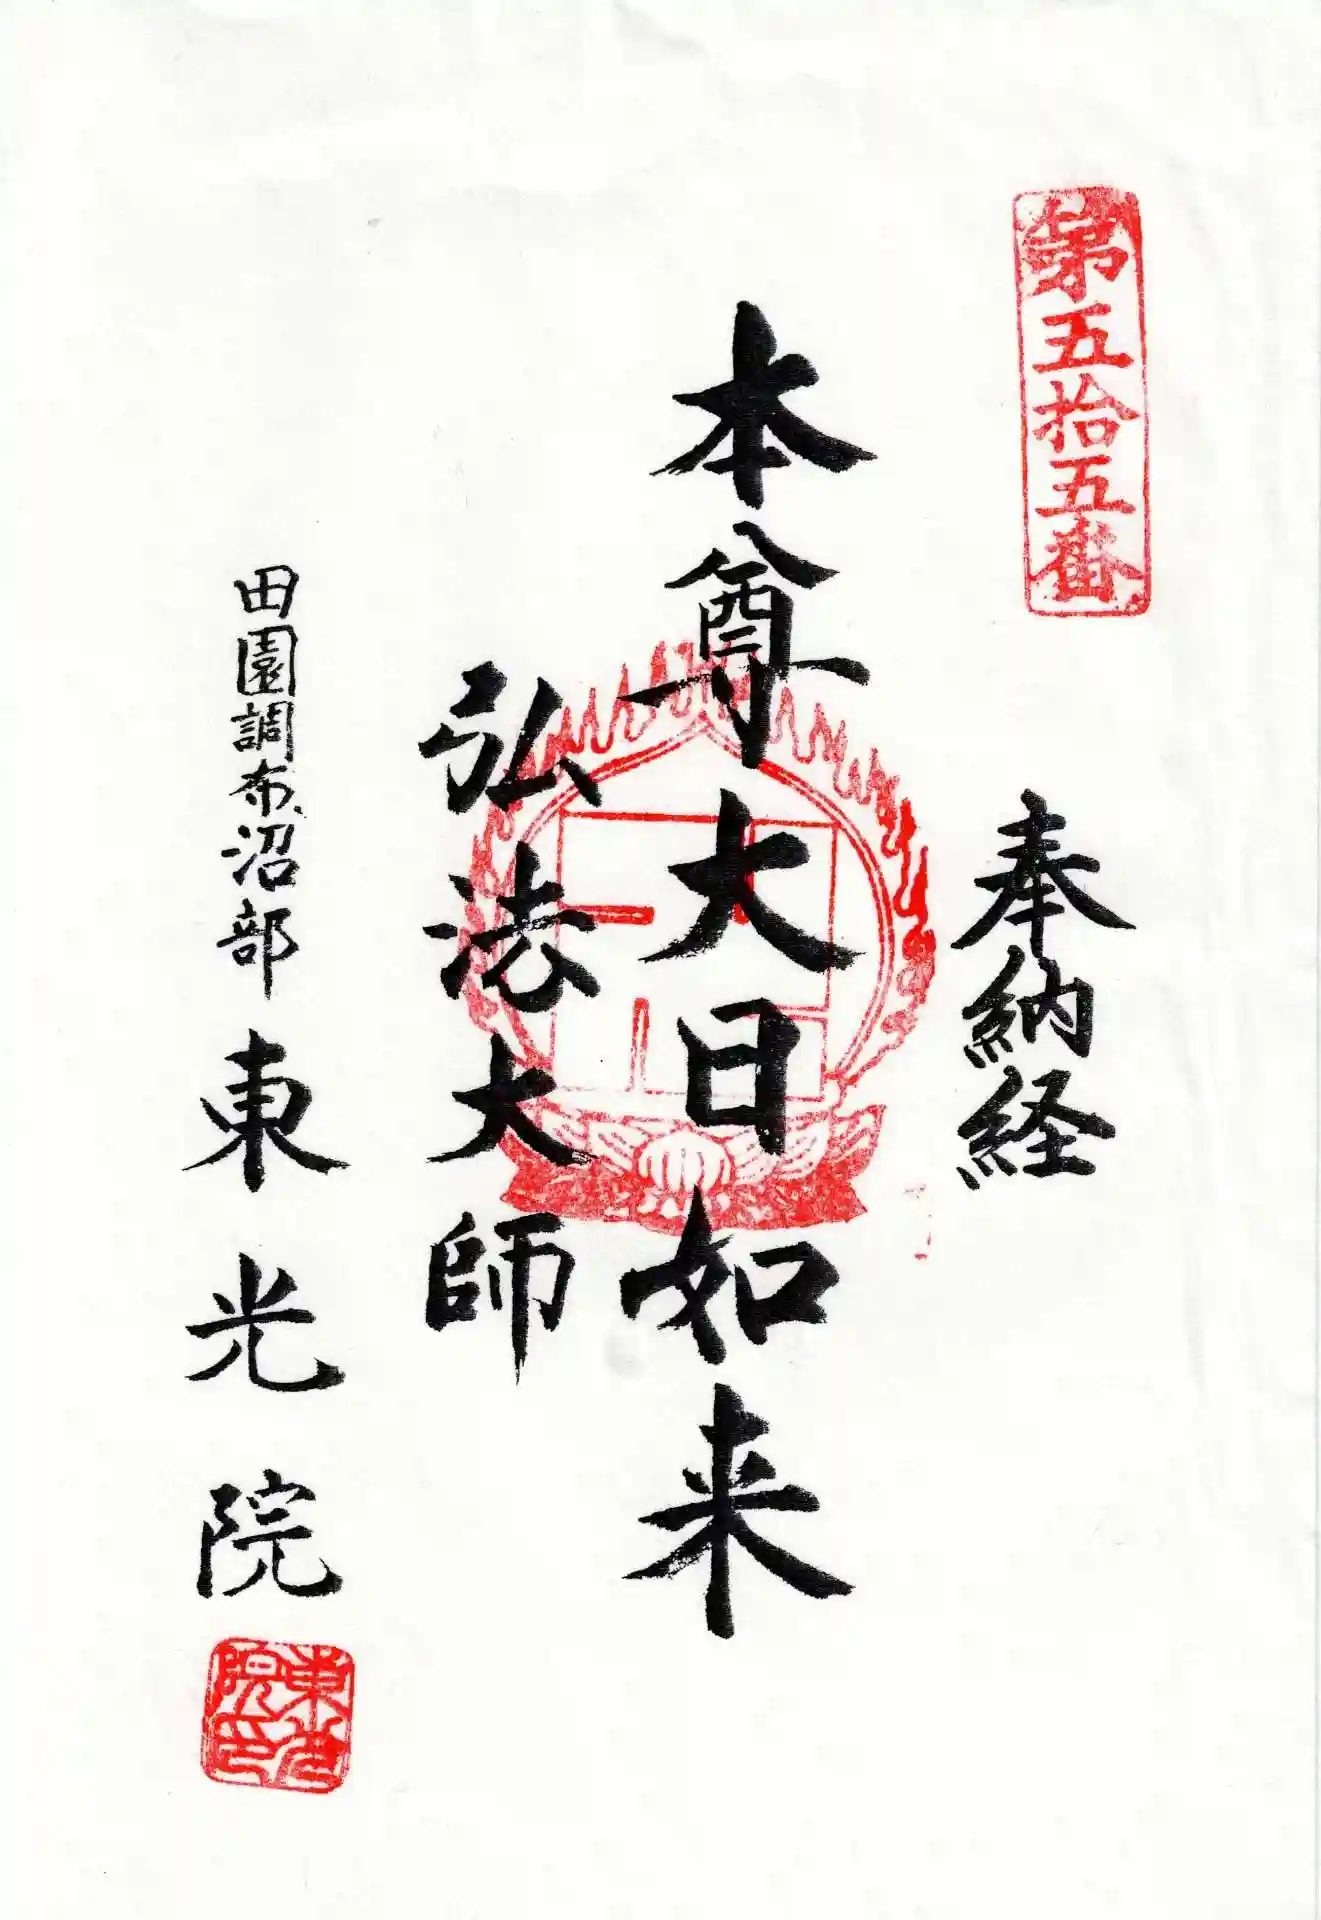 第五拾五番
奉納経
本尊大日如来
弘法大師
田園調布沼部 東光院
東光院印